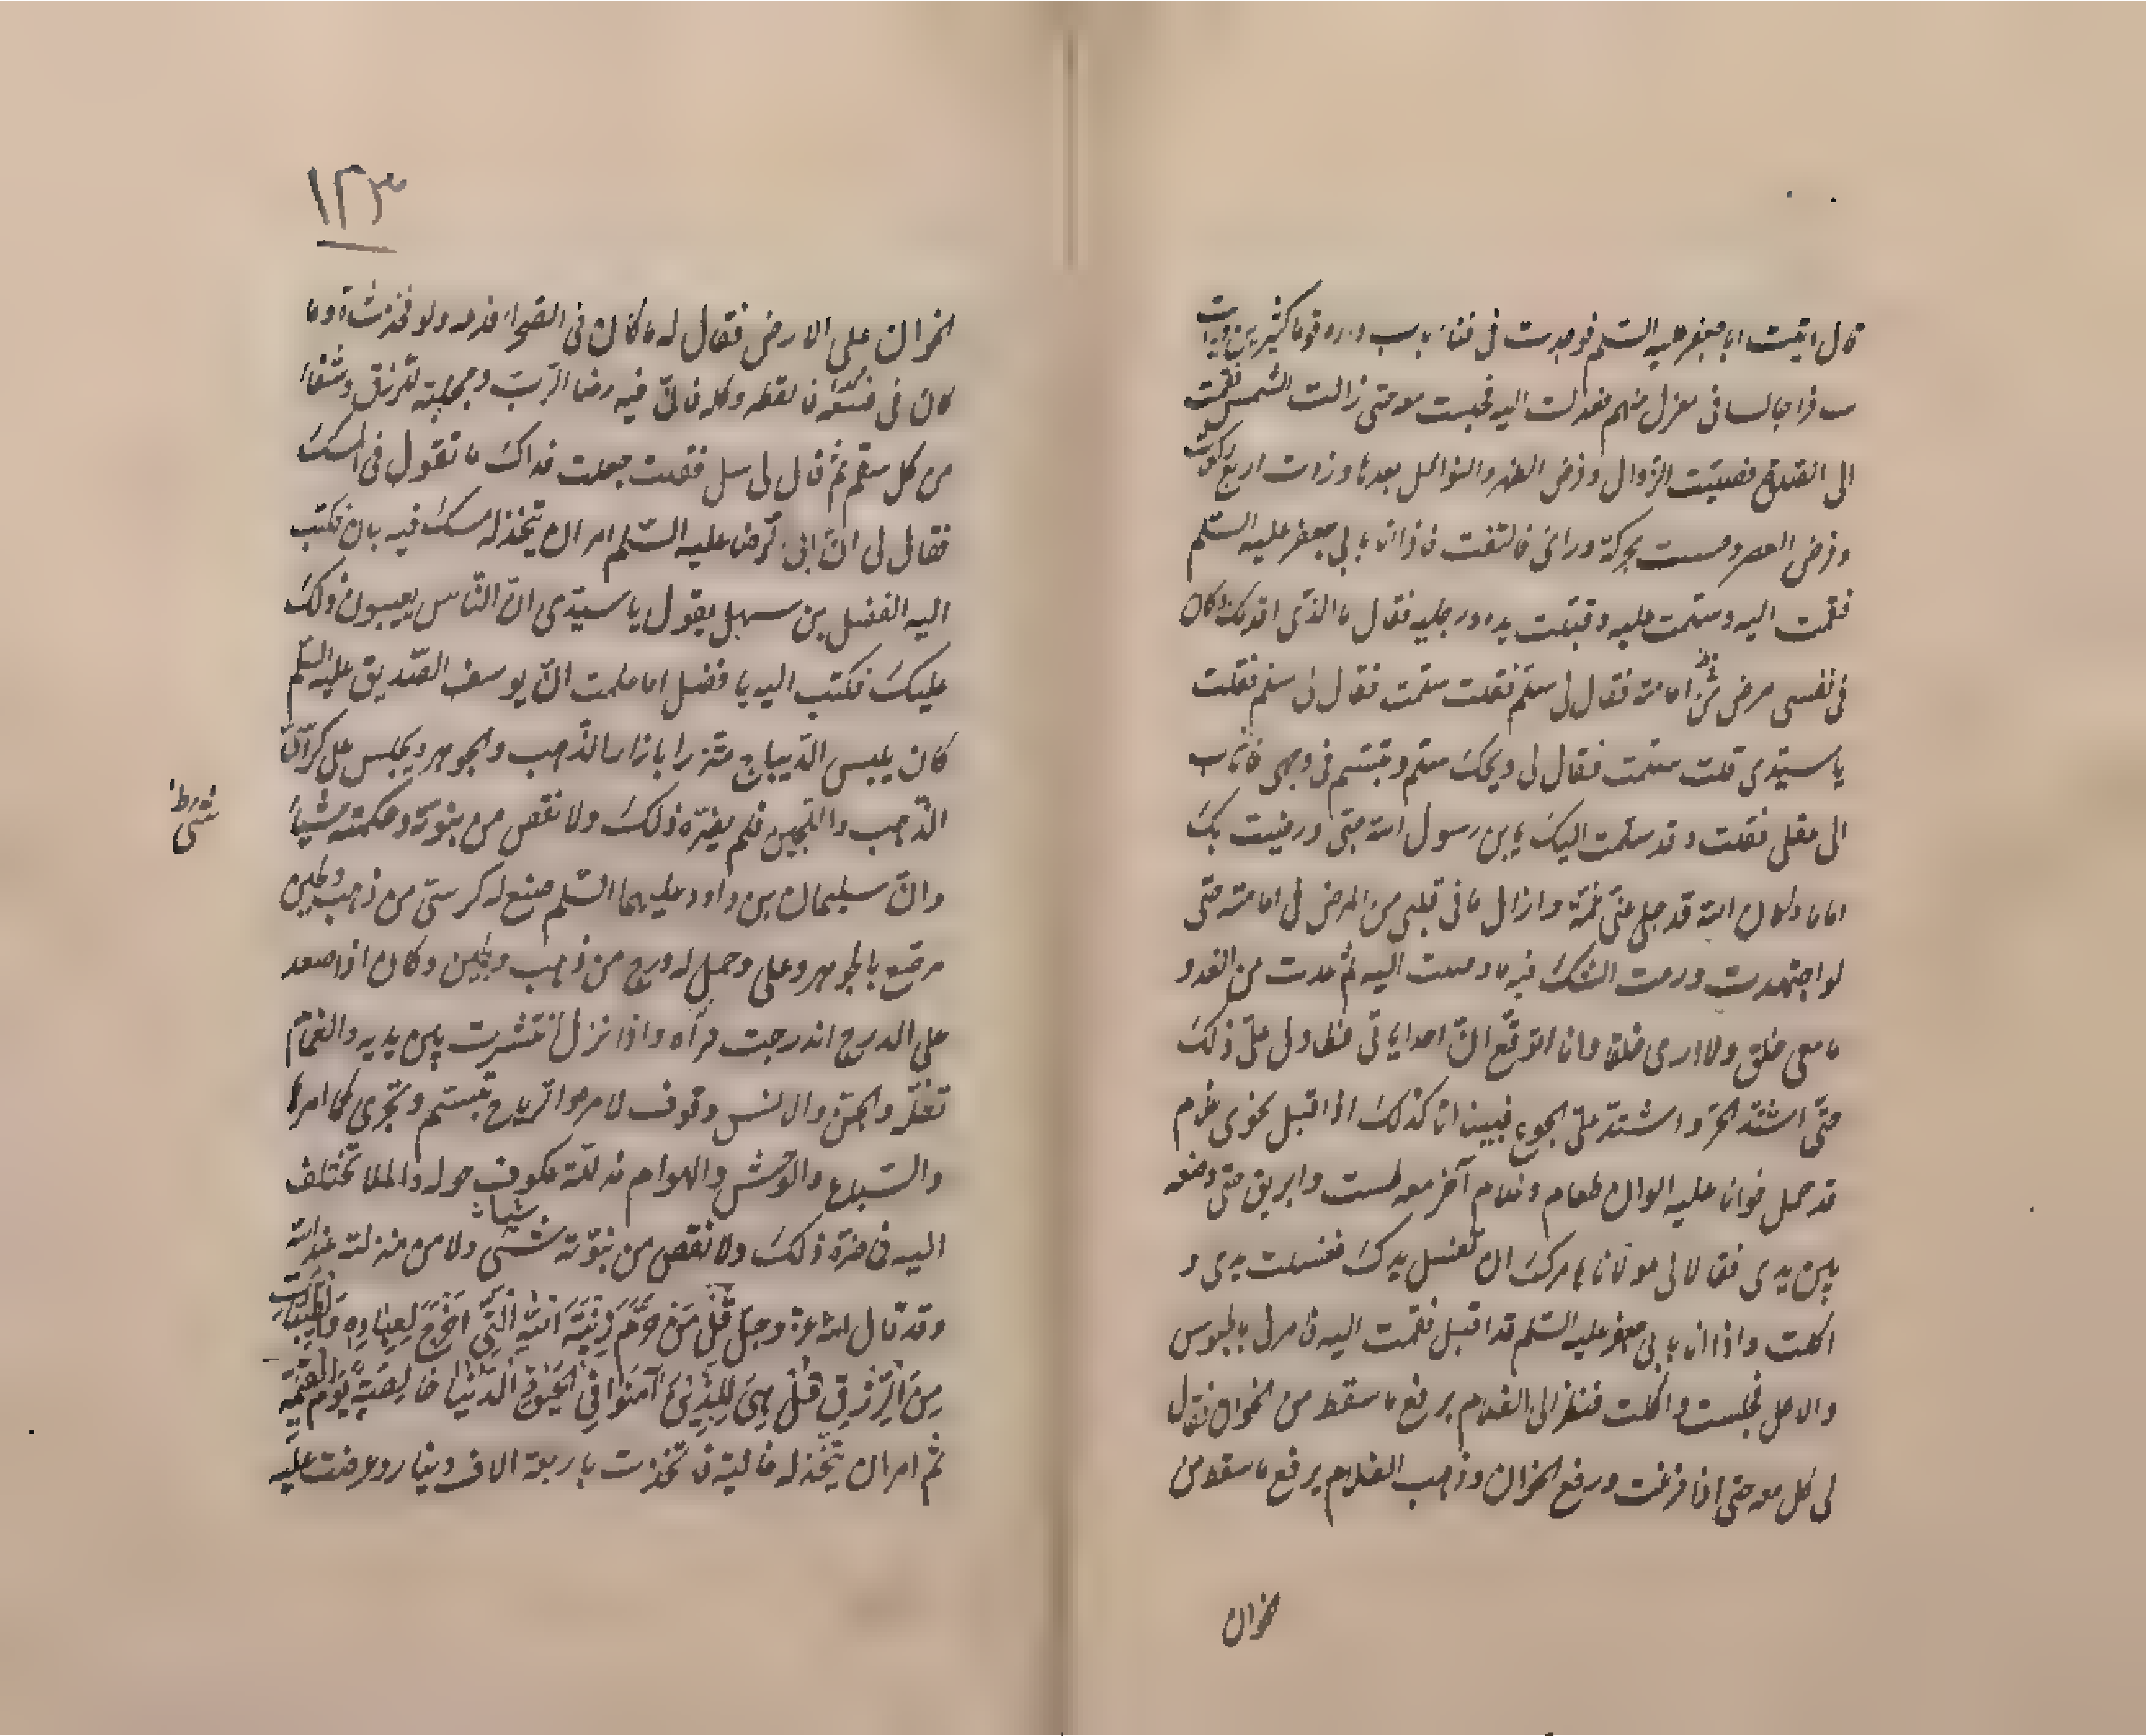 قال اتيت ابا جعفر عليه السلم فوجدت في فناء باب داره قوما كثيرين ورايت
مسافرا جالسا في معزل منهم فعدلت اليه فجلست معه حتى زالت الشمس فقمت
الى الصلوة فصليت الزوال وفرض الظهر والنوافل بعدها وزدت اربع ركعات
وفرض العصر وحسست بحركة ورائى فالتفت فاذا انا بابي جعفر عليه السلم
فقمت اليه وسلمت عليه وقبلت يده ورجليه فقال ما الذى اقدمك وكان
في نفسى مرض من امامته فقال لى سلم فقلت سلمت فقال لى سلم فقلت
يا سيدى قلت سلمت فقال لى ويحك سلم وتبسم في وجهى فاناب
الى عقلى فقلت وقد سلمت اليك يابن رسول الله حتى ورضيت بك
اماما وكان الله قد جلى عنى غمة وازال ما في قلبى من المرض فى امامته حتى
لو اجتهدت ورمت الشك فيه ما وصلت اليه ثم عدت من الغد و
ما معى خلق ولا ارى خلقا وانا اتوقع ان احدا ياتى فطاول على ذلك
حتى اشتد الحر واشتد على الجوع فبينا انا كذلك اذ اقبل نحوى غلام
قد حمل خوانا عليه الوان طعام وغلام آخر معه طست وابريق حتى وضعه
بين يدى فقالا لى مولانا يامرك ان تغسل يدك فغسلت يدى و
اكلت واذا انا بابى جعفر عليه السلم قد اقبل فقمت اليه فامرنى بالجلوس
والاكل فجلست واكلت فنظر الى الغلام يرفع ما سقط من الخوان فقال
لى كل معه حتى اذا فرغت ورفع الخوان وذهب الغلام يرفع ما سقط من
الخوان
١٢٣
الخوان على الارض فقال له ما كان فى الصحراء فدعه ولو فخذ شاة وما
كان فى فسقه فالقطه وكله فان فيه رضا الرب ومجلبة للرزق وشفاء
من كل سقم ثم قال لى سل فقلت جعلت فداك ما تقول فى المسك
فقال لى ان ابى الرضا عليه السلم امر ان يتخذ له مسك فيه بان فكتب
اليه الفضل بن سهل يقول يا سيدى ان الناس يعيبون ذلك
عليك فكتب اليه يا فضل اما علمت ان يوسف الصديق عليه السلم
كان يلبس الديباج متزرا بازار الذهب والجوهر ويجلس على كراسى
الذهب واللجين فلم يضره ذلك ولا نقص من نبوته وحكمته شيئا
شئ ط
وان سليمان بن داود عليهما السلم صنع له كرسى من ذهب ولجين
مرصع بالجوهر وعلى وحمل له درج من ذهب ولجين وكان اذا صعد
على الدرج اندرجت وراه واذا نزل انتشرت بين يديه والغمام
تظله والجن والانس وقوف لامره والرياح تنسم وتجرى كما امرها
والسباع والوحش والهوام مذللة عكوف حوله والملأ تختلف
اليه فما ضره ذلك ولا نقص من نبوته شيئا شئ ولا من منزلته عند الله
وقد قال الله عز وجل قُلْ مَنْ حَرَّمَ زِينَةَ اللهِ الَّتِي أَخْرَجَ لِعِبَادِهِ وَالطَّيِّبَاتِ
مِنَ الرِّزْقِ قُلْ هِيَ لِلَّذِينَ آمَنُوا فِي الْحَيٰوةِ الدُّنْيَا خَالِصَةً يَوْمَ الْقِيٰمَةِ
ثم امر ان يتخذ له غالية فاتخذت باربعة الاف دينار وعرضت عليه